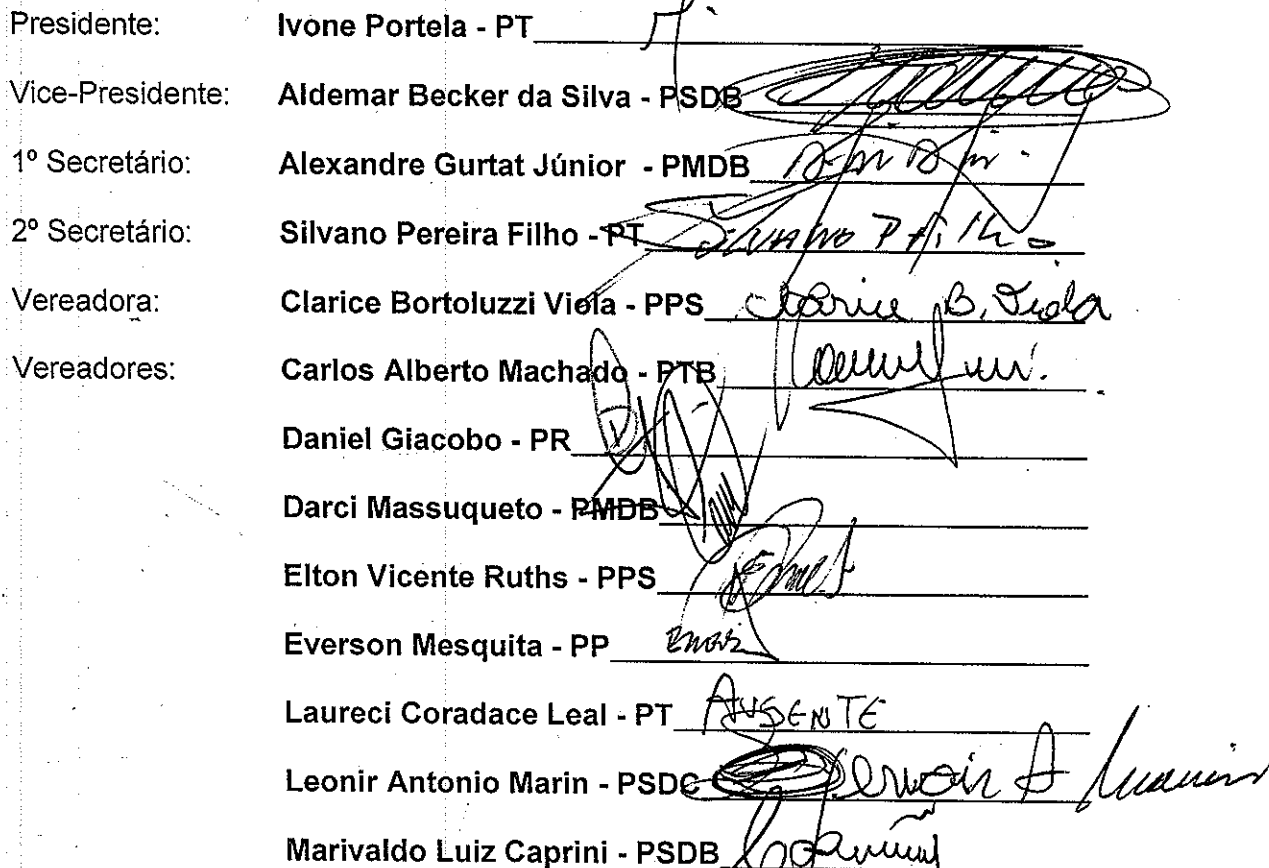 Presidente: Ivone Portela - PT
Vice-Presidente: Aldemar Becker da Silva - PSDB
1º Secretário: Alexandre Gurtat Júnior - PMDB
2º Secretário: Silvano Pereira Filho - PT Silvano P. Filho
Vereadora: Clarice Bortoluzzi Viola - PPS Clarice B. Viola
Vereadores: Carlos Alberto Machado - PTB
Daniel Giacobo - PR
Darci Massuqueto - PMDB
Elton Vicente Ruths - PPS
Everson Mesquita - PP
Laureci Coradace Leal - PT AUSENTE
Leonir Antonio Marin - PSDC Leonir A Marin
Marivaldo Luiz Caprini - PSDB